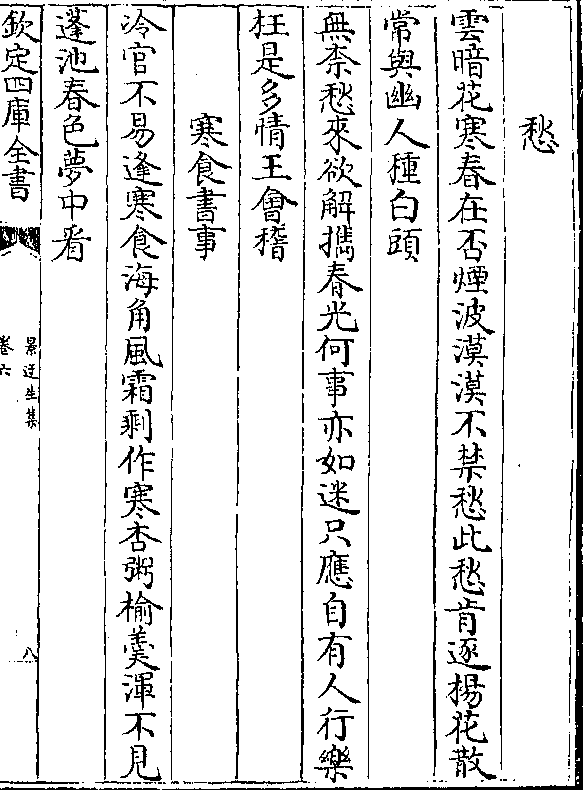 愁
雲暗花寒春在否煙波漠漠不禁愁此愁肯逐楊花散
常與幽人種白頭
無柰愁來欲解攜春光何事亦如迷只應自有人行樂
枉是多情王會稽
寒食書事
冷官不易逢寒食海角風霜剩作寒杏粥榆羹渾不見
蓬池春色夢中看
欽定四庫全書
景迂生集
卷六
八